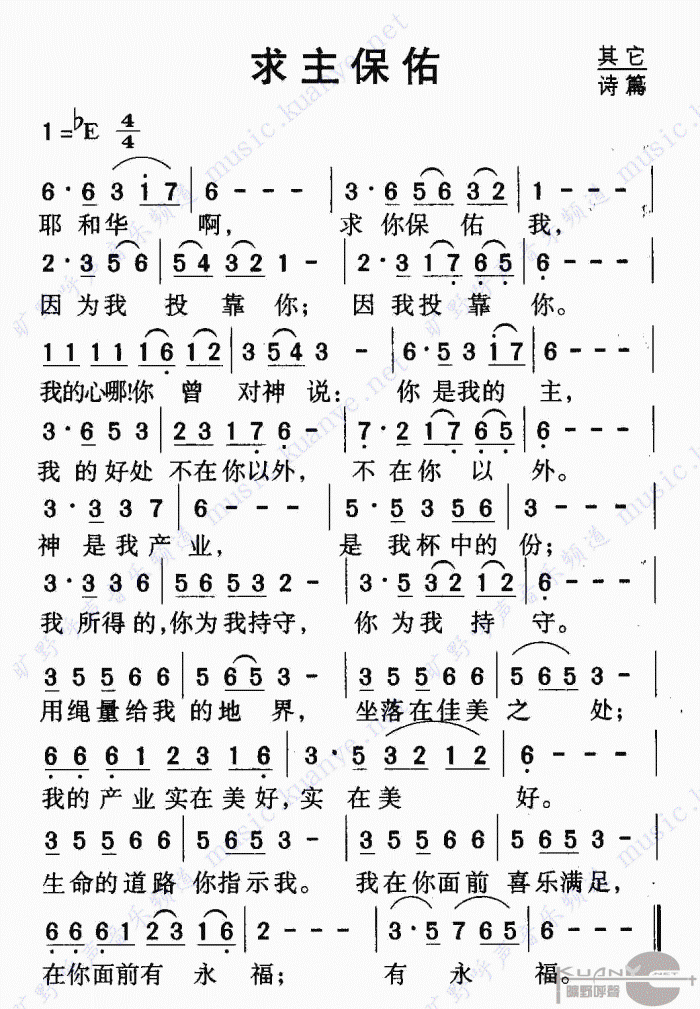 求主保佑
其它
诗篇
1=♭E 4/4
6·6 3 i 7 | 6 - - - | 3·6 5 6 3 2 | 1 - - - |
耶和华 啊, 求你保 佑 我,
2·3 5 6 | 5 4 3 2 1 - | 2·3 1 7 6 5 | 6 - - - |
因为我 投 靠 你; 因我投 靠 你。
1 1 1 1 1 6 1 2 | 3 5 4 3 - | 6·5 3 i 7 | 6 - - - |
我的心哪!你 曾 对神 说: 你是我的 主,
3·6 5 3 | 2 3 1 7 6 - | 7·2 1 7 6 5 | 6 - - - |
我的好处 不在你以外, 不在你 以 外。
3·3 3 7 | 6 - - - | 5·5 3 5 6 | 3 - - - |
神是我产业, 是我杯中的份;
3·3 3 6 | 5 6 5 3 2 - | 3·5 3 2 1 2 | 6 - - - |
我所得的,你为我持守, 你为我 持 守。
3 5 5 5 6 6 | 5 6 5 3 - | 3 5 5 5 6 6 | 5 6 5 3 - |
用绳量给我 的地 界, 坐落在佳美 之 处;
6 6 6 1 2 3 1 6 | 3·5 3 2 1 2 | 6 - - - |
我的产业实在美好,实在美 好。
3 5 5 5 6 6 | 5 6 5 3 - | 3 5 5 5 6 6 | 5 6 5 3 - |
生命的道路 你指示我。 我在你面前 喜乐满足,
6 6 6 6 1 2 3 1 6 | 2 - - - | 3·5 7 6 5 | 6 - - - ‖
在你面前有 永 福; 有 永 福。
旷野呼声音乐频道 music.kuanye.net
KUANYE.NET
旷野呼聲